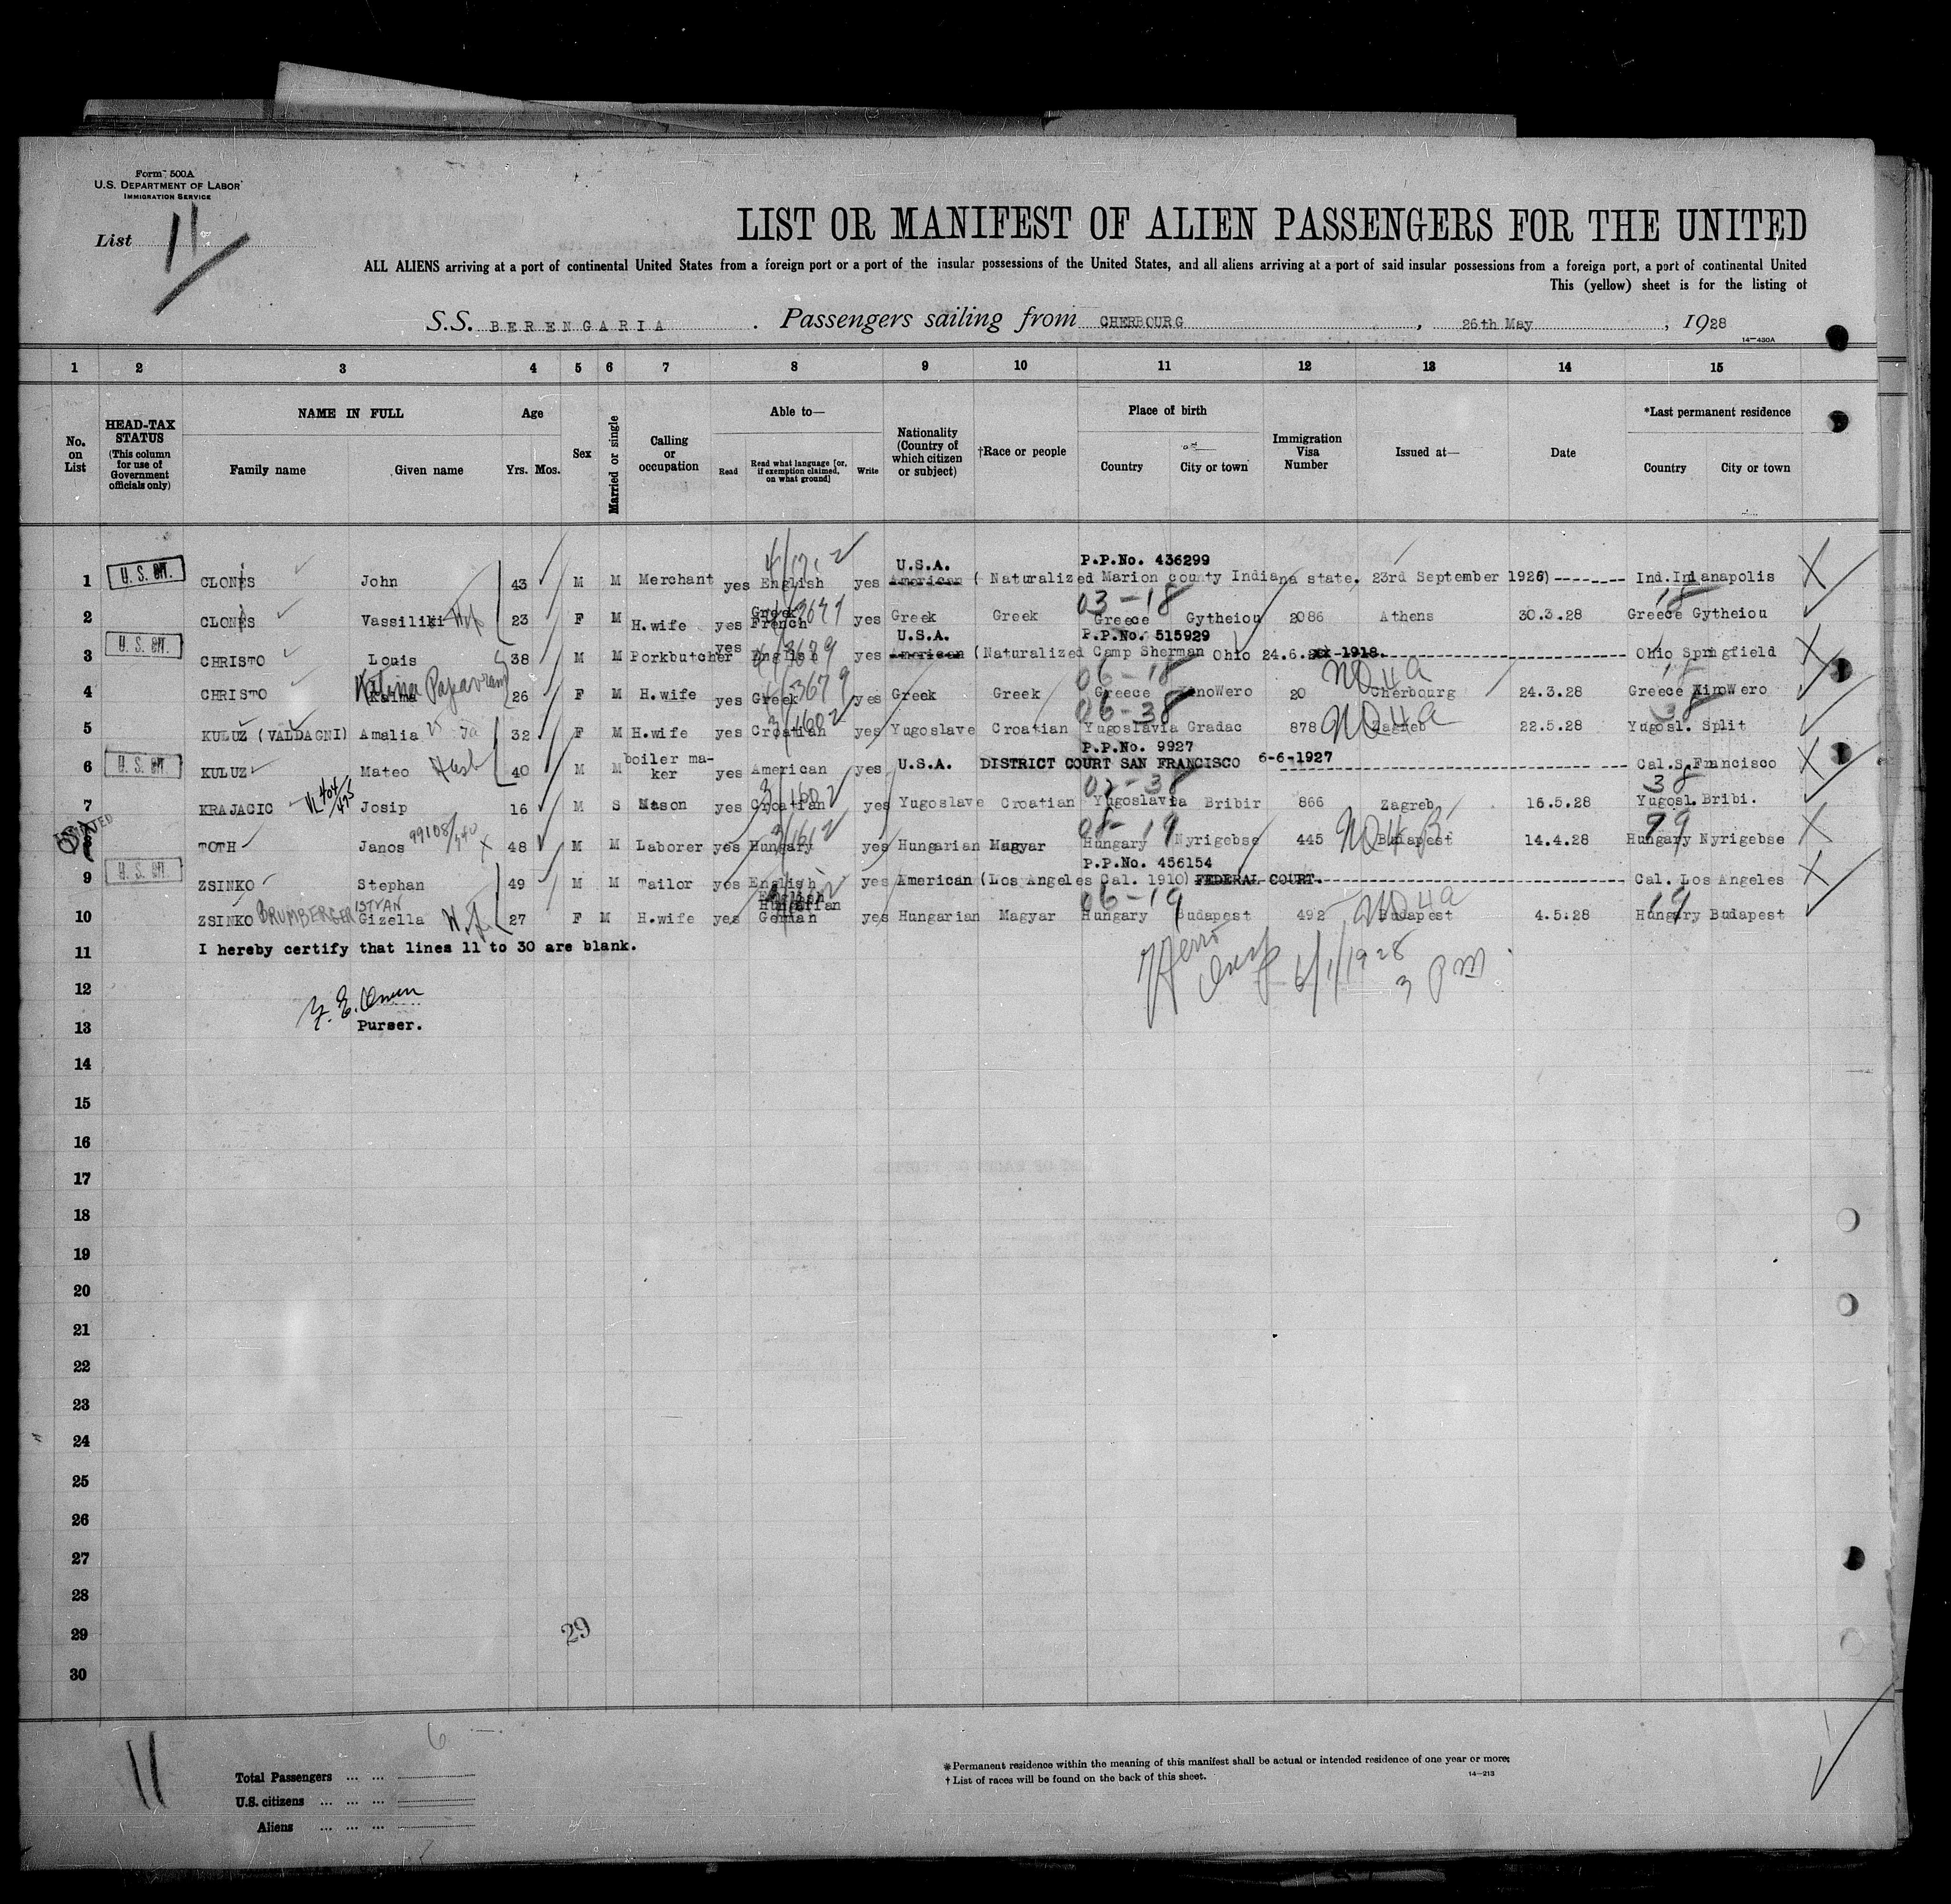 Form 500A
U.S. DEPARTMENT OF LABOR
IMMIGRATION SERVICE
List 11
LIST OR MANIFEST OF ALIEN PASSENGERS FOR THE UNITED
ALL ALIENS arriving at a port of continental United States from a foreign port or a port of the insular possessions of the United States, and all aliens arriving at a port of said insular possessions from a foreign port, a port of continental United
This (yellow) sheet is for the listing of
S.S. BERENGARIA . Passengers sailing from CHERBOURG , 26th May , 1928
14—430A
1 2 3 4 5 6 7 8 9 10 11 12 13 14 15
No. on List
HEAD-TAX STATUS (This column for use of Government officials only)
NAME IN FULL Family name Given name
Age Yrs. Mos.
Sex
Married or single
Calling or occupation
Able to— Read Read what language [or, if exemption claimed, on what ground] Write
Nationality (Country of which citizen or subject)
†Race or people
Place of birth Country City or town
Immigration Visa Number
Issued at—
Date
*Last permanent residence Country City or town
U.S.A. P.P.No. 436299
1 U.S. CIT. CLONES John 43 M M Merchant yes English yes American ( Naturalized Marion county Indiana state, 23rd September 1926) Ind. Indianapolis
03-18 18
2 CLONES Vassiliki Wf 23 F M H.wife yes Greek French yes Greek Greek Greece Gytheiou 2086 Athens 30.3.28 Greece Gytheiou
U.S.A. P.P.No. 515929
3 U.S. CIT. CHRISTO Louis 38 M M Porkbutcher yes English yes American (Naturalized Camp Sherman Ohio 24.6. -1918. Ohio Springfield
06-18 NQ4a 18
4 CHRISTO 26 F M H.wife yes Greek yes Greek Greek Greece XinoWero 20 Cherbourg 24.3.28 Greece XinoWero
06-38 NQ4a 38
5 KULUZ (VALDAGNI) Amalia 32 F M H.wife yes Croatian yes Yugoslave Croatian Yugoslavia Gradac 878 Zagreb 22.5.28 Yugosl. Split
P.P.No. 9927
6 U.S. CIT. KULUZ Mateo Husb 40 M M boiler ma-ker yes American yes U.S.A. DISTRICT COURT SAN FRANCISCO 6-6-1927 Cal.S.Francisco
38
7 KRAJACIC Josip 16 M S Mason yes Croatian yes Yugoslave Croatian Yugoslavia Bribir 866 Zagreb 16.5.28 Yugosl. Bribi.
3/1612 NQ4B
8 TOTH Janos 48 M M Laborer yes Hungary yes Hungarian Magyar Hungary Nyrigebse 445 Budapest 14.4.28 Hungary Nyrigebse
P.P.No. 456154
9 U.S. CIT. ZSINKO Stephan 49 M M Tailor yes English yes American (Los Angeles Cal. 1910) FEDERAL COURT. Cal. Los Angeles
ISTVAN 06-19 NQ4a 19
10 ZSINKO BRUMBERGER Gizella Wf 27 F M H.wife yes English Hungarian German yes Hungarian Magyar Hungary Budapest 492 Budapest 4.5.28 Hungary Budapest
11 I hereby certify that lines 11 to 30 are blank.
6/1/1928 3 PM
12
13 Purser.
14
15
16
17
18
19
20
21
22
23
24
25
26
27
28
29
29
30
6
11
Total Passengers ... ...
U.S. citizens ... ... ...
Aliens ... ... ...
*Permanent residence within the meaning of this manifest shall be actual or intended residence of one year or more.
†List of races will be found on the back of this sheet.
14—213